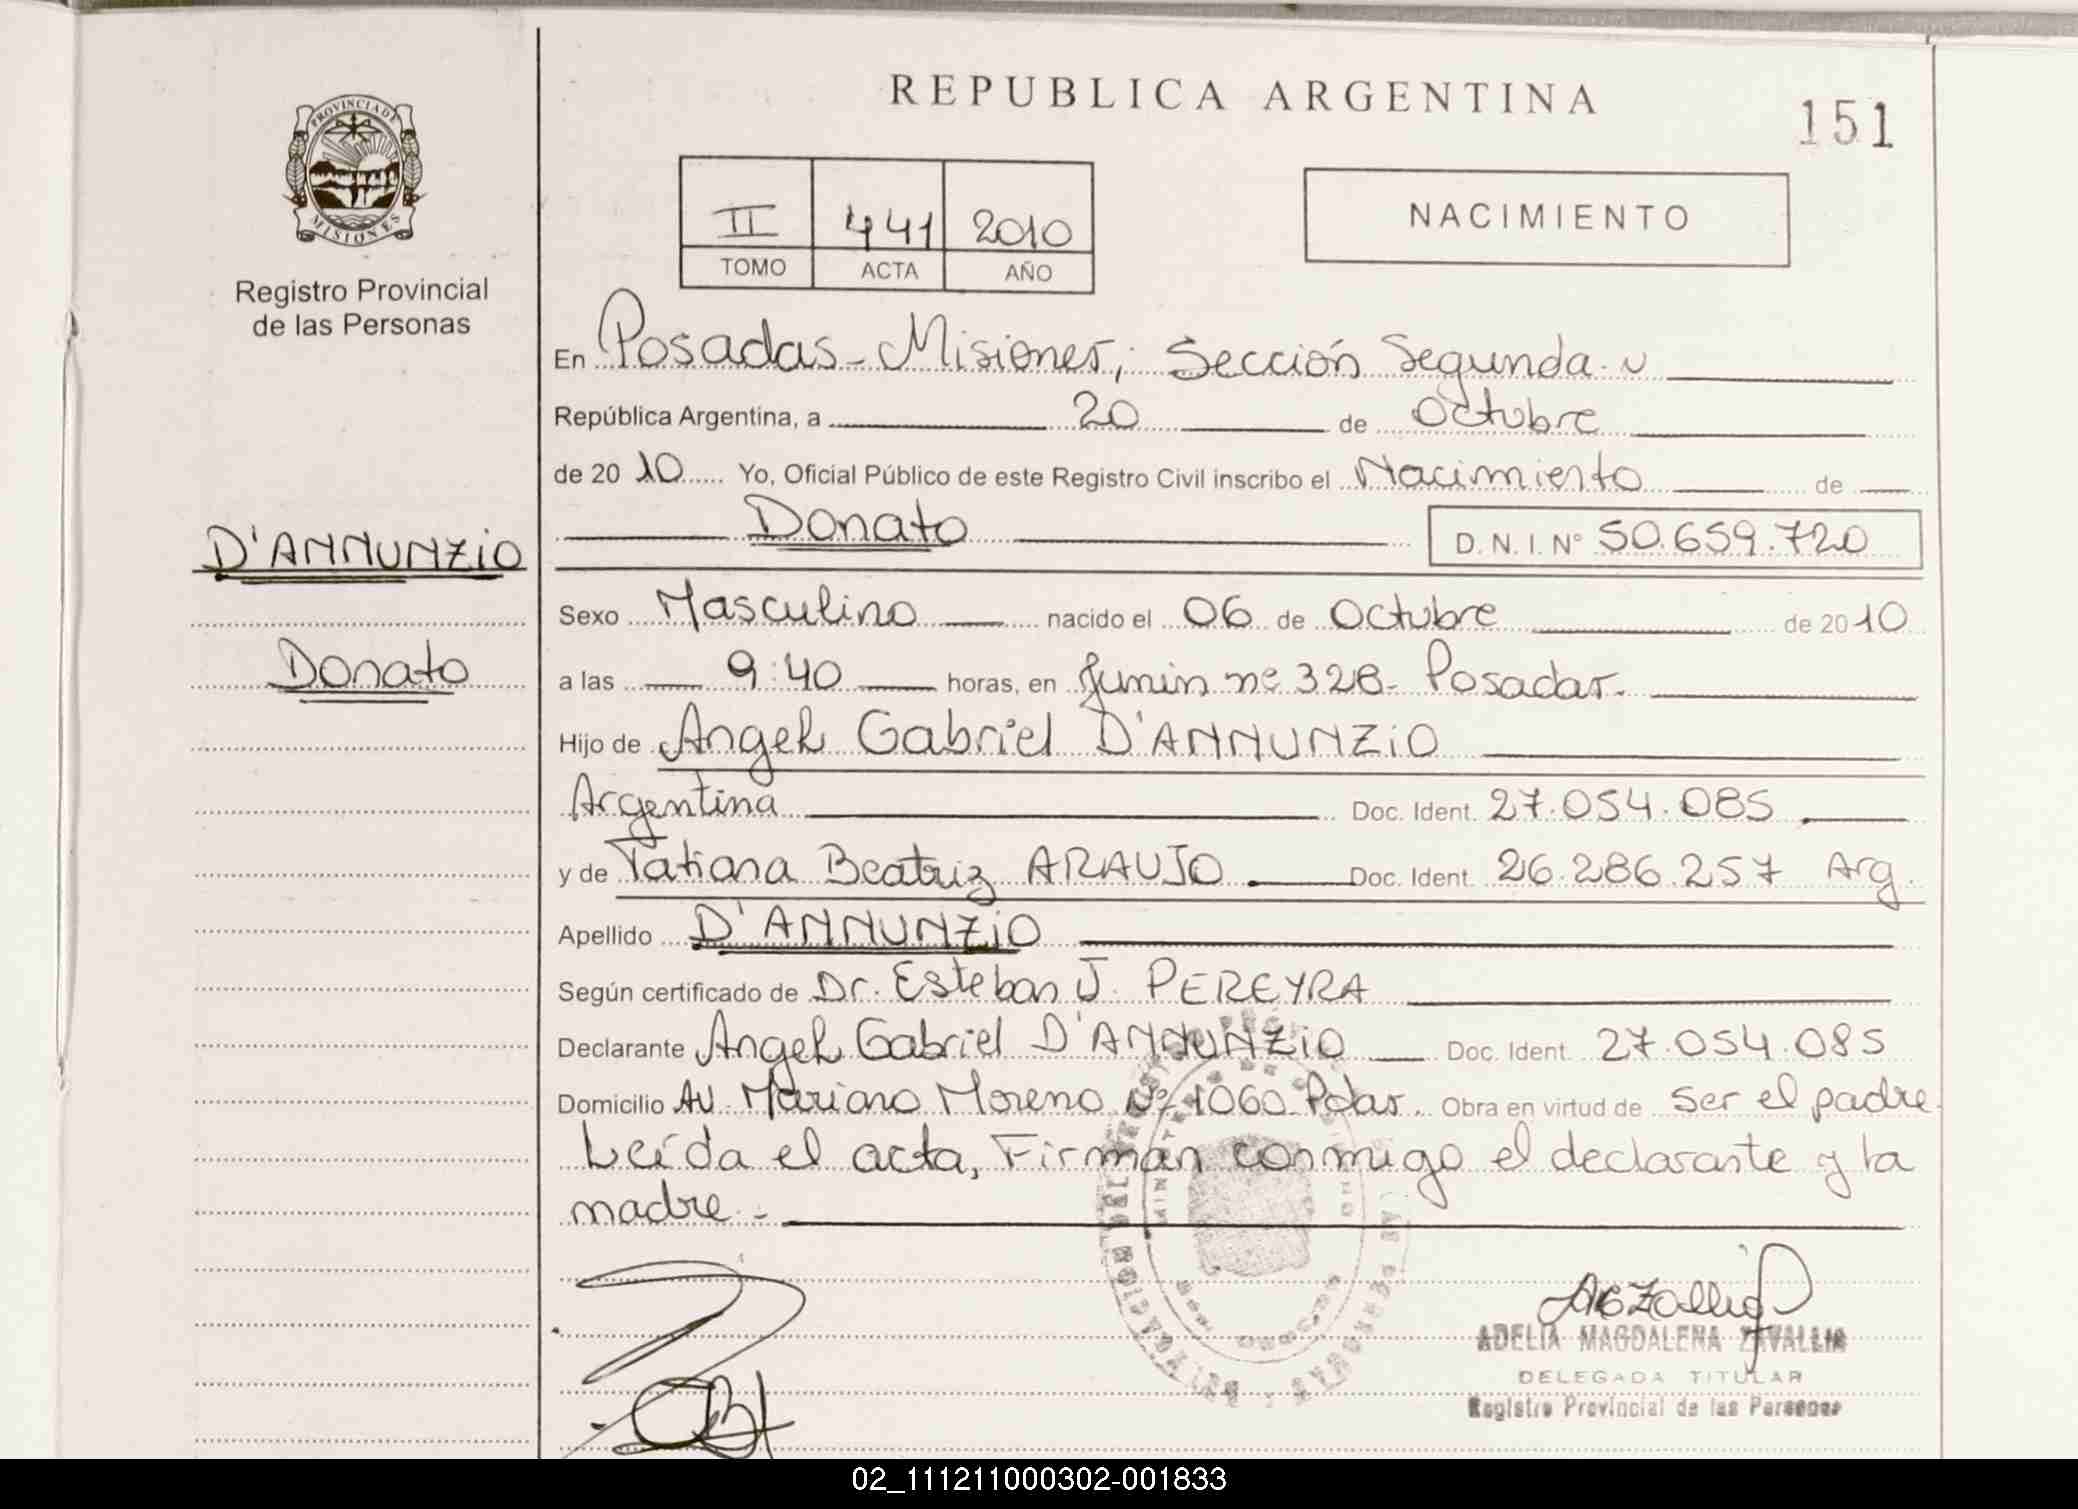 REPUBLICA ARGENTINA
151
PROVINCIA DE
MISIONES
Registro Provincial
de las Personas
II 441 2010
TOMO ACTA AÑO
NACIMIENTO
En Posadas - Misiones, Sección Segunda
República Argentina, a 20 de Octubre
de 20 10 Yo, Oficial Público de este Registro Civil inscribo el Nacimiento de
Donato D. N. I. N° 50.659.720
D'ANNUNZIO
Donato
Sexo Masculino nacido el 06 de Octubre de 20 10
a las 9:40 horas, en Junin nº 328 - Posadas.
Hijo de Angel Gabriel D'ANNUNZIO
Argentina Doc. Ident. 27.054.085
y de Tatiana Beatriz ARAUJO Doc. Ident. 26.286.257 Arg.
Apellido D'ANNUNZIO
Según certificado de Dr. Esteban J. PEREYRA
Declarante Angel Gabriel D'ANNUNZIO Doc. Ident. 27.054.085
Domicilio AV Mariano Moreno Nº 1060 Pdas. Obra en virtud de ser el padre.
Leída el acta, Firman conmigo el declarante y la
madre. -
ADELIA MAGDALENA ZAVALLIA
DELEGADA TITULAR
Registro Provincial de las Personas
02_111211000302-001833